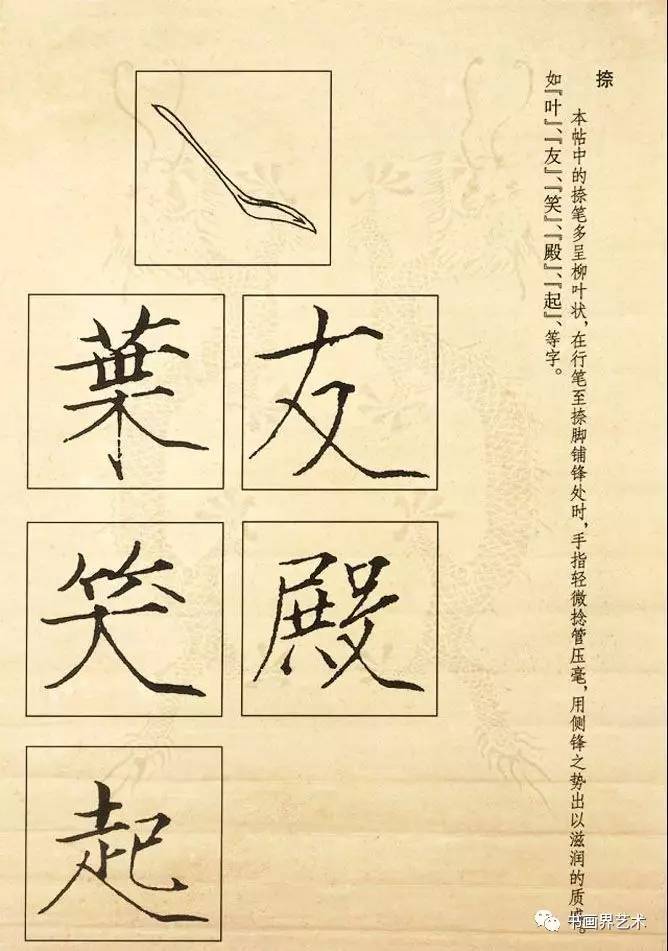 捺
本帖中的捺笔多呈柳叶状，在行笔至捺脚铺锋处时，手指轻微捻管压毫，用侧锋之势出以滋润的质感。
如『叶』、『友』、『笑』、『殿』、『起』、等字。
葉 友
笑 殿
起
书画界艺术